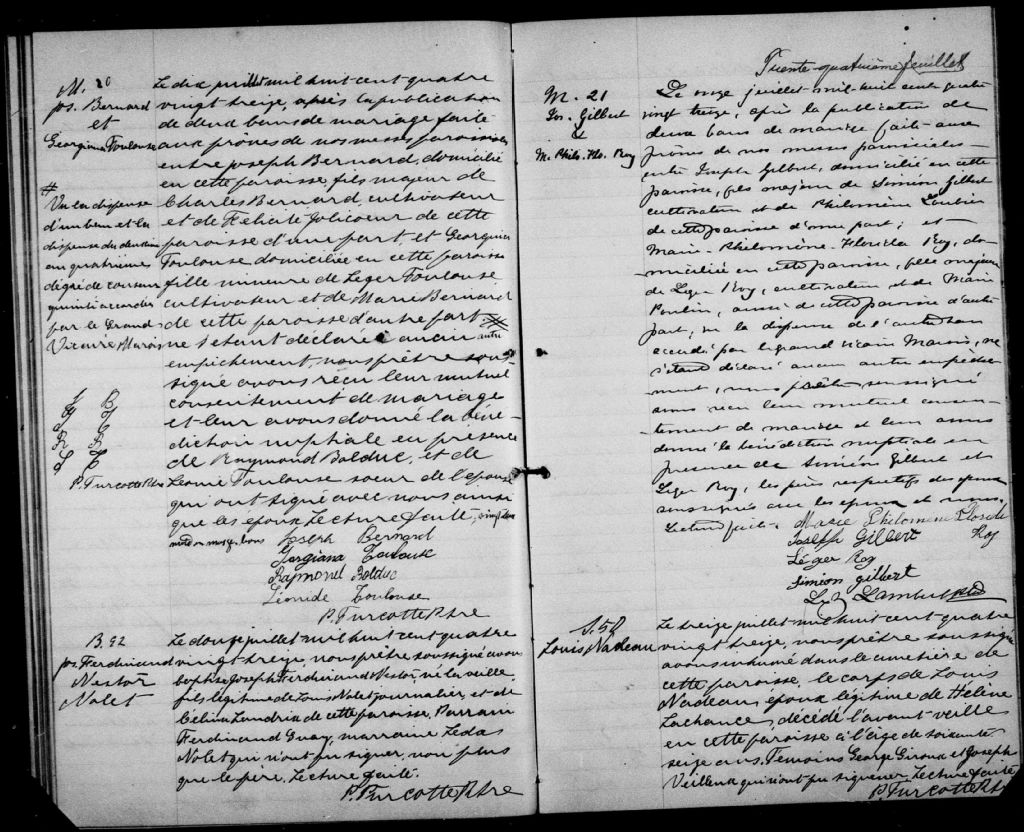 M. 20
Jos. Bernard
et
Georgina Toulouse
#
Vu la dispense
d'un ban et la
dispense du
au quatrième
degré de consan
guinité accordés
par le Grand
Vicaire Marois
J B
G T
R B
L T
P. Turcotte Ptre
Le dix juillet mil huit cent quatre
vingt treize, après la publication
de deux bans de mariage faite
aux prônes de nos messes paroissiales
entre Joseph Bernard, domicilié
en cette paroisse, fils majeur de
Charles Bernard, cultivateur
et de Félicité Jolicoeur de cette
paroisse d'une part, et Georgina
Toulouse domiciliée en cette paroisse
fille mineure de Léger Toulouse
cultivateur et de Marie Bernard
de cette paroisse d'autre part #
ne s'étant déclaré aucun autre
empêchement, nous prêtre sous-
signé avons reçu leur mutuel
consentement de mariage
et leur avons donné la béné-
diction nuptiale en présence
de Raymond Bolduc, et de
Léonie Toulouse soeur de l'épouse
qui ont signé avec nous ainsi
que les époux. Lecture faite,
bons
Joseph Bernard
Georgiana Toulouse
Raymond Bolduc
Léonide Toulouse
P. Turcotte Ptre
B. 92
Jos. Ferdinand
Nestor
Nolet
Le douze juillet mil huit cent quatre
vingt treize, nous prêtre soussigné avons
baptisé Joseph Ferdinand Nestor, né la veille
fils légitime de Louis Nolet journalier, et de
Célina Landrie de cette paroisse, Parrain
Ferdinand Guay, marraine Léda
Nolet qui n'ont pu signer, non plus
que le père. Lecture faite.
P. Turcotte Ptre
Trente-quatrième feuillet
M. 21
Jos. Gilbert
&
M. Philo. Flo. Roy
Le onze juillet mil huit cent quatre
vingt treize, après la publication de
deux bans de mariage faite aux
prônes de nos messes paroissiales
entre Joseph Gilbert, domicilié en cette
paroisse, fils majeur de Siméon Gilbert
cultivateur et de Philomène Poulin
de cette paroisse d'une part; et
Marie-Philomène-Florida Roy, do-
miciliée en cette paroisse, fille majeure
de Léger Roy, cultivateur et de Marie
Poulin, aussi de cette paroisse d'autre
part, vu la dispense de l'autre ban
accordé par le grand vicaire Marois, ne
s'étant déclaré aucun autre empêche-
ment, nous prêtre soussigné
avons reçu leur mutuel consen-
tement de mariage et leur avons
donné la bénédiction nuptiale en
présence de Siméon Gilbert et
Léger Roy, les pères respectifs des époux
soussignés avec les époux et nous.
Lecture faite.
Marie Philomène Floride Roy
Joseph Gilbert
Léger Roy
Siméon Gilbert
Lambert Ptre
S. 52
Louis Nadeau
Le treize juillet mil huit cent quatre
vingt treize, nous prêtre soussigné
avons inhumé dans le cimetière de
cette paroisse, le corps de Louis
Nadeau, époux légitime de Hélène
Lachance, décédé l'avant veille
en cette paroisse à l'âge de soixante
seize ans. Témoins George Giroux et Joseph
Veilleux qui n'ont pu signer. Lecture faite
P. Turcotte Ptre